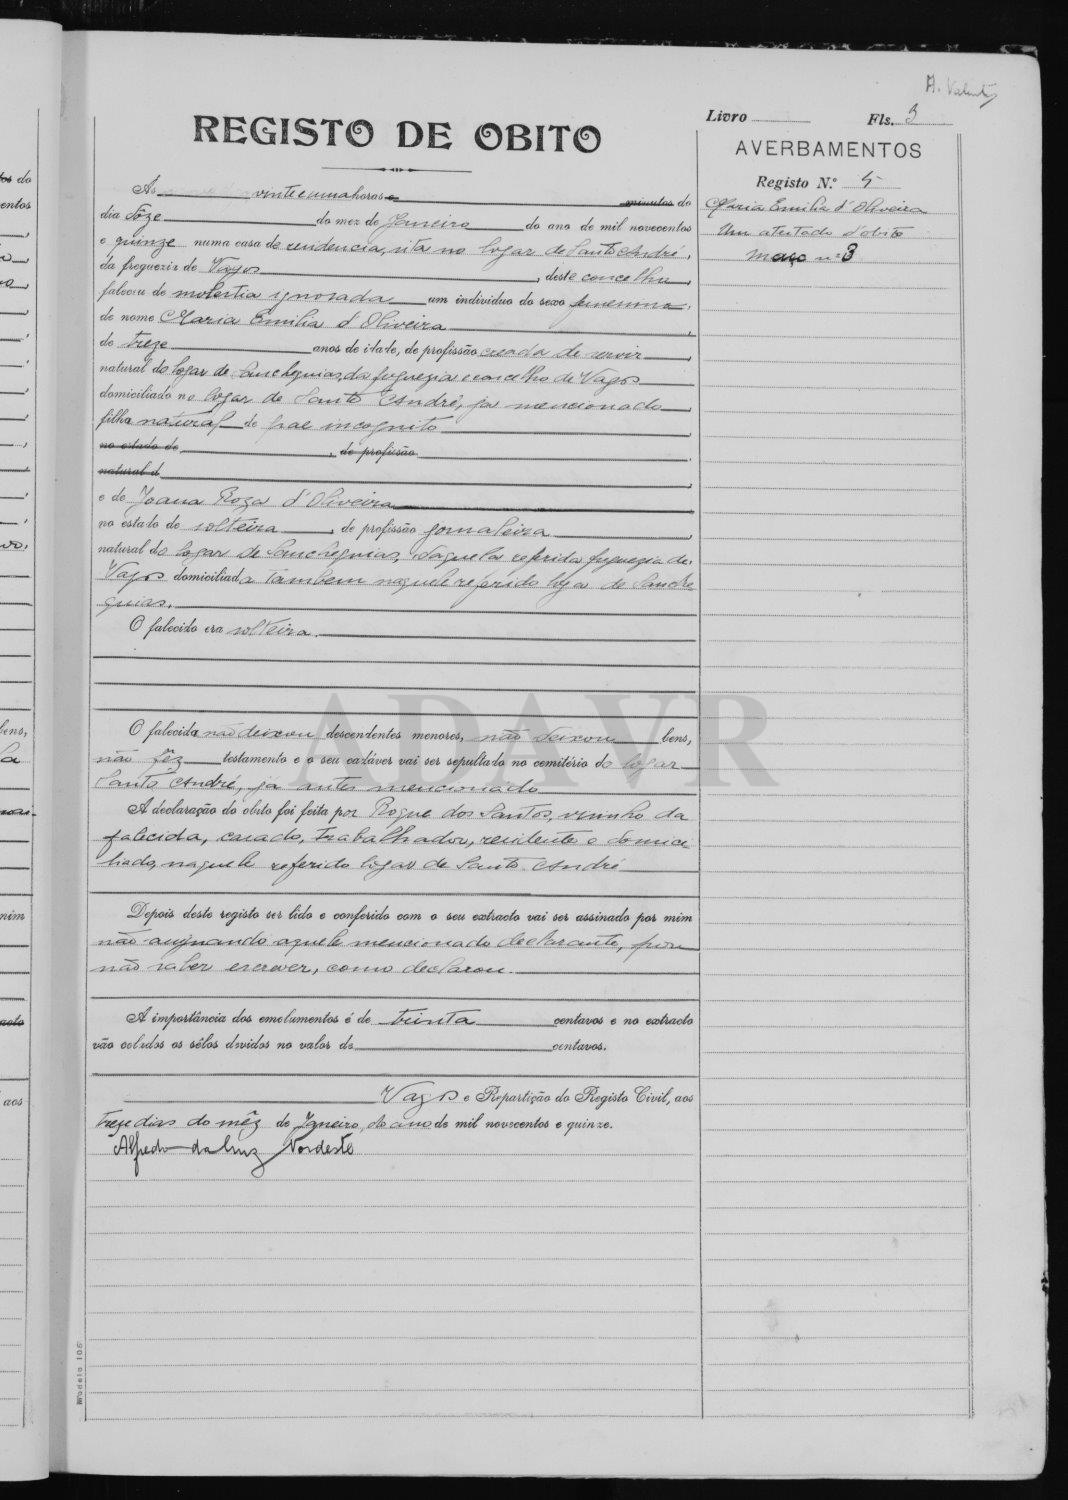 Livro Fls. 3
REGISTO DE OBITO
AVERBAMENTOS
Registo N.º 5
Maria Emilia d'Oliveira
Um atestado d'obito
maço nº 3
Ás vinte e uma horas e minutos do
dia dôze do mez de Janeiro do ano de mil novecentos
e quinze numa casa de residencia, sita no logar de Santo André,
da freguezia de Vagos, deste concelho,
faleceu de molestia ignorada um individuo do sexo femenino,
de nome Maria Emilia d'Oliveira
de treze anos de idade, de profissão creada de servir,
natural do logar de Sanchequias, da freguezia e concelho de Vagos
domiciliado no logar de Santo André, já mencionado,
filha natural de pae incognito
no estado de, de profissão
natural d
e de Joana Roza d'Oliveira
no estado de solteira, de profissão jornaleira,
natural do logar de Sanchequias, daquela referida freguezia de
Vagos domiciliada tambem naquele referido logar de Sanche
quias.
O falecido era solteira.
O falecida não deixou descendentes menores, não deixou bens,
não fêz testamento e o seu cadáver vai ser sepultado no cemitério do logar
Santo André, já antes mencionado
A declaração do obito foi feita por Roque dos Santos, visinho da
falecida, casado, trabalhador, residente e domici
liado, naquele referido logar de Santo André
Depois deste registo ser lido e conferido com o seu extracto vai ser assinado por mim
não assinando aquele mencionado declarante, por
não saber escrever, como declarou.
A importância dos emolumentos é de trinta centavos e no extracto
vão colados os sêlos devidos no valor de centavos.
Vagos e Repartição do Registo Civil, aos
treze dias do mês de Janeiro, do ano de mil novecentos e quinze.
Alfredo da Luz Nordeste
Modelo 105
ADAVR